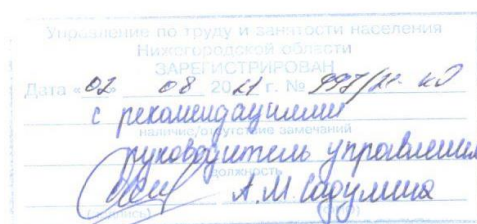 Управление по труду и занятости населения
Нижегородской области
ЗАРЕГИСТРИРОВАН
Дата «02 08 2021 г. №
с рекомендациями
наличие/отсутствие замечаний
руководитель управления
должность
А.М.